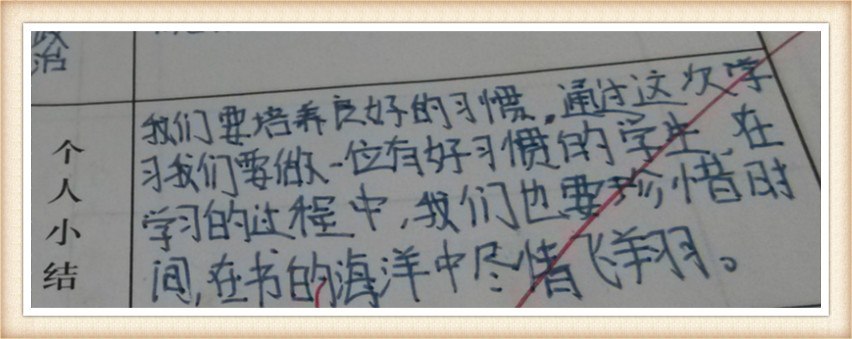 政治
个人小结
我们要培养良好的习惯。通过这次学
习我们要做一位有好习惯的学生,在
学习的过程中,我们也要珍惜时
间,在书的海洋中尽情飞翔。